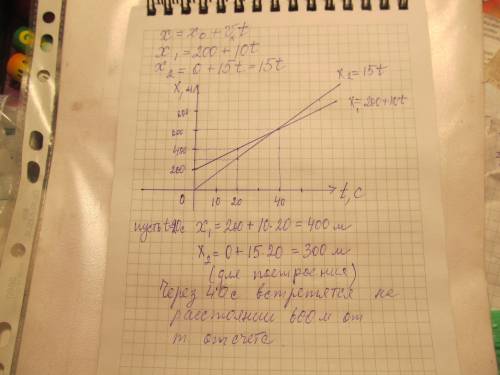 x = x₀ + vₓt
x₁ = 200 + 10t
x₂ = 0 + 15t = 15t
x, м
x₂ = 15t
x₁ = 200 + 10t
600
400
200
0
10
20
40
t, с
пусть t=20с x₁ = 200 + 10·20 = 400 м
x₂ = 0 + 15·20 = 300 м
(для построения)
Через 40с встретятся на
расстоянии 600 м от
т. отсчета